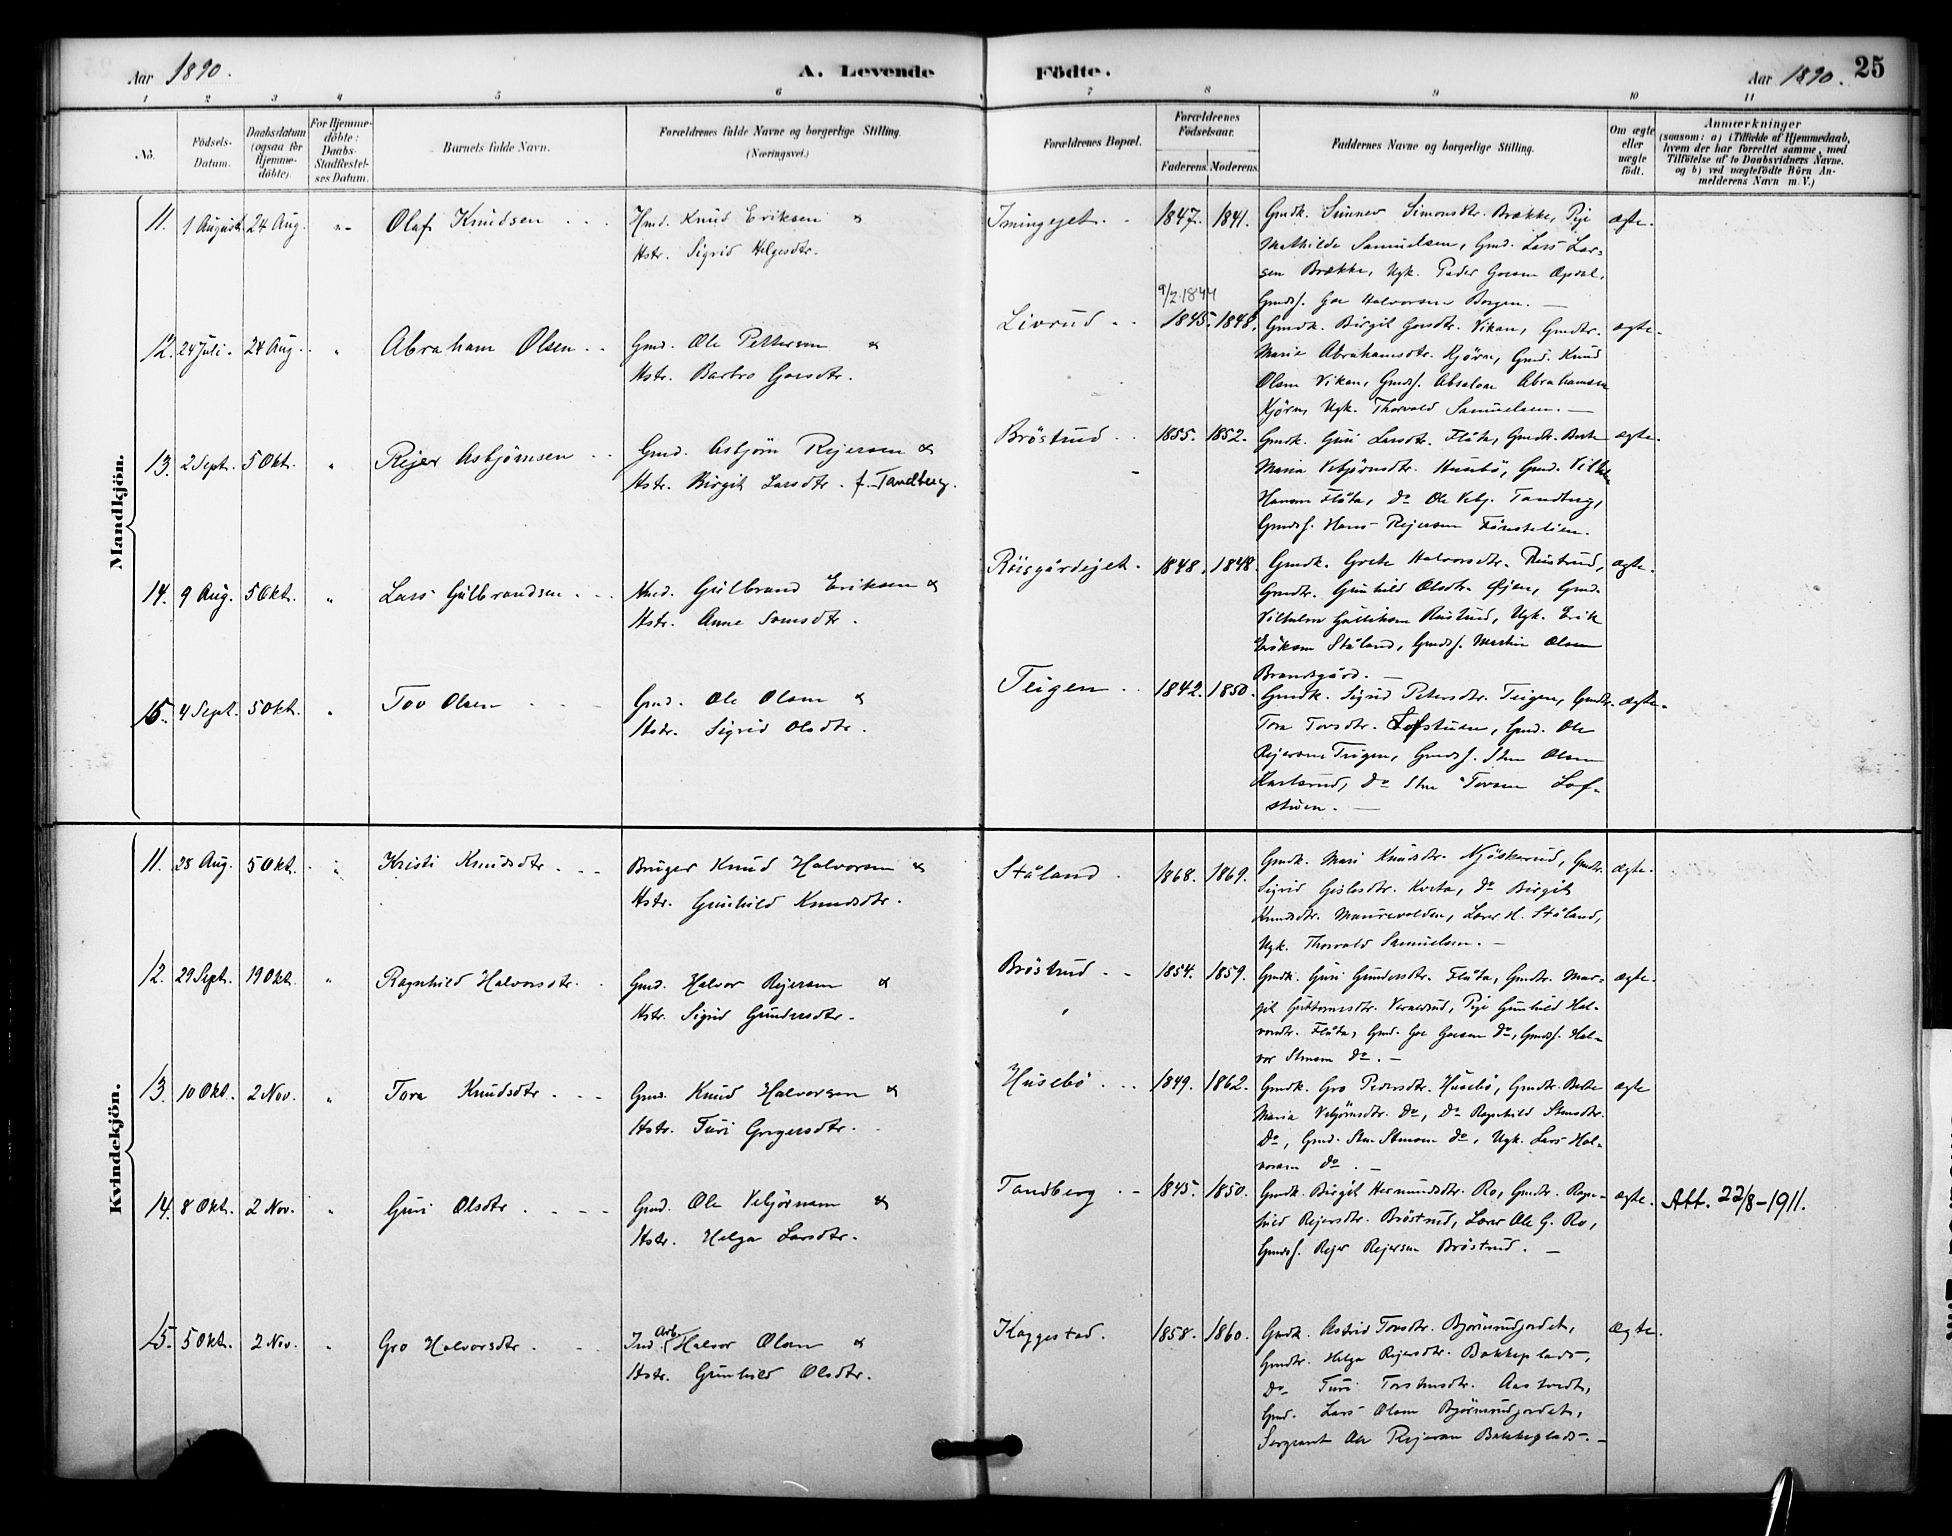 Aar 1890.
A. Levende
Födte.
Aar 1890.
25
1 2 3 4 5 6 7 8 9 10 11
No.
Födsels-
Datum.
Daabsdatum
(ogsaa for
Hjemme-
döbte).
For Hjemme-
döbte:
Daabs-
Stadfæstel-
ses Datum.
Barnets fulde Navn.
Forældrenes fulde Navne og borgerlige Stilling.
(Næringsvei.)
Forældrenes Bopæl.
Forældrenes
Födselsaar.
Faderens. Moderens.
Faddernes Navne og borgerlige Stilling.
Om ægte
eller
uægte
födt.
Anmærkninger
(saasom: a) i Tilfælde af Hjemmedaab,
hvem der har forrettet samme, med
Tilföielse af to Daabsvidners Navne.
og b) ved uægtefödte Börn An-
melderens Navn m. V.)
Mandkjön.
11. 1 August. 24 Aug. "- Olaf Knudsen
Hmd. Knud Eriksen &
Hstr. Sigrid Helgesdtr.
Imingejet. 1847. 1841.
Gmdk. Sünnev Simonsdtr. Brække, Pige
Mathilde Samuelsen, Gmd. Lars Lar-
sen Brække, Ugk. Peder Goesen Opdal,
Gmds. Goe Halvorsen Borgen. —
ægte.
12. 24 Juli. 24 Aug. " Abraham Olsen
Gmd. Ole Pettersen &
Hstr. Barbro Goesdtr.
Livrud 9/2.1844
1845. 1848.
Gmdk. Birgit Goesdtr. Vikan, Gmdtr.
Marie Abrahamsdtr. Kjörn, Gmd. Knud
Olsen Vikan, Gmds. Absalon Abrahamsen
Kjörn, Ugk. Thorvald Samuelsen. —
ægte.
13. 2 Sept. 5 Okt. " Rejer Asbjörnsen
Gmd. Asbjörn Rejersen &
Hstr. Birgit Larsdtr. f. Tandberg.
Bröstrud 1855. 1852.
Gmdk. Guri Larsdtr. Flåta, Gmdtr. Berte
Maria Vebjörnsdtr. Husebö, Gmd. Vilhm
Hansen Flåta, Do Ole Vebj. Tandberg,
Gmds. Hans Rejersen Fönstelien.
ægte.
14. 9 Aug. 5 Okt. " Lars Gulbrandsen
Hmd. Gulbrand Eriksen &
Hstr. Anne Tomsdtr.
Röisgårdejet. 1848. 1848.
Gmdk. Grete Halvorsdtr. Rustrud,
Gmdtr. Gunhild Olsdtr. Öjen, Gmd.
Vilhelm Gulliksen Rustrud, Ugk. Erik
Eriksen Ståland, Gmds. Martin Olsen
Brandsgård. —
ægte.
15. 4 Sept. 5 Okt. " Tov Olsen
Gmd. Ole Olsen &
Hstr. Sigrid Olsdtr.
Teigen 1842. 1850.
Gmdk. Sigrid Petersdtr. Teigen, Gmdtr.
Tora Torsdtr. Lofstuen, Gmd. Ole
Rejersen Teigen, Gmds. Sten Olsen
Karlsrud, Do Sten Toresen Lof-
stuen. —
ægte.
Kvindekjön.
11. 28 Aug. 5 Okt. " Kristi Knudsdtr.
Bruger Knud Halvorsen &
Hstr. Gunhild Knudsdtr.
Ståland 1868. 1869.
Gmdk. Mari Knudsdtr. Njöskerud, Gmdtr.
Sigrid Gislesdtr. Kveta, Do Birgit
Knudsdtr. Maurevolden, Lærer H. Ståland,
Ugk. Thorvald Samuelsen. —
ægte.
12. 29 Sept. 19 Okt. " Ragnhild Halvorsdtr.
Gmd. Halvor Rejersen &
Hstr. Sigrid Gundersdtr.
Bröstrud 1854. 1859.
Gmdk. Guri Gundersdtr. Flåta, Gmdtr. Mar-
git Guttormsdtr. Veraldrud, Pige Gunhild Hal-
vorsdtr. Flåta, Gmd. Goe Goesen Do, Gmds. Hal-
vor Stensen Do. —
ægte.
13. 10 Okt. 2 Nov. " Tora Knudsdtr
Gmd. Knud Halvorsen &
Hstr. Turi Gregersdtr.
Husebö 1849. 1862.
Gmdk. Gro Pedersdtr. Husebö, Gmdtr. Berte
Maria Vebjörnsdtr. Do, Do Ragnhild Stensdtr.
Do, Gmd. Sten Stensen Do, Ugk. Lars Hal-
vorsen Do. —
ægte
14. 8 Okt. 2 Nov. " Guri Olsdtr
Gmd. Ole Vebjörnsen &
Hstr. Helga Larsdtr.
Tandberg 1845. 1850.
Gmdk. Birgit Hermundsdtr. Ro, Gmdtr. Ragn-
hild Rejersdtr. Bröstrud, Lærer Ole G. Ro,
Gmds. Rejer Rejersen Bröstrud. —
ægte.
Att. 22/8-1911.
15. 5 Okt. 2 Nov. " Gro Halvorsdtr
Ind. Arb. Halvor Olsen &
Hstr. Gunhild Olsdtr.
Kaggestad. 1858. 1860.
Gmdk. Astrid Torsdtr. Björnrudjordet,
Gmdtr. Helga Rejersdtr. Bakkeplads,
Do Turi Torstensdtr. Aastvedt,
Gmd. Lars Olsen Björnrudjordet,
Sergeant Ole Rejersen Bakkeplads. —
Ægte.